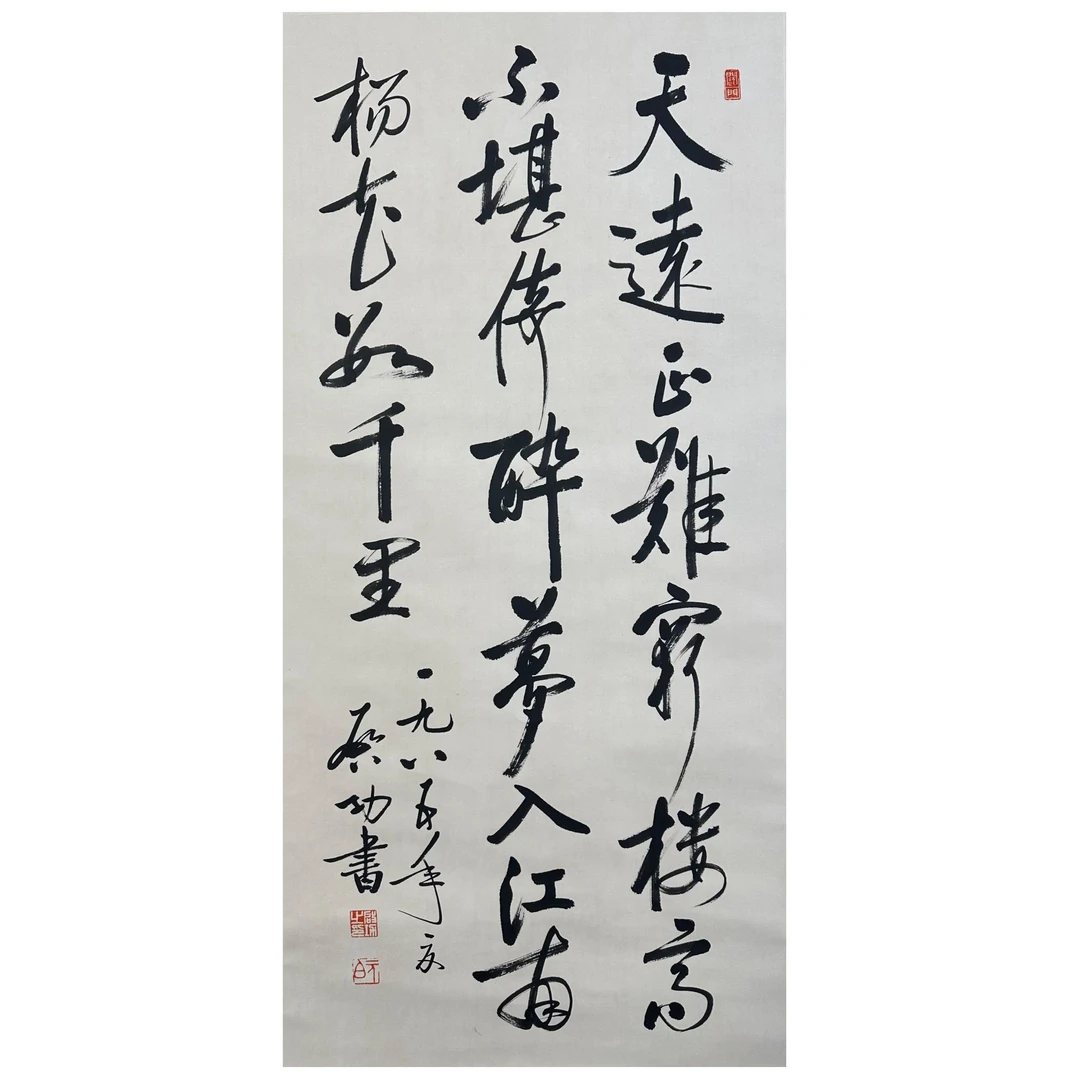 天遠正難窮楼高
不堪倚醉夢入江南
楊花数千里
一九八五年夏
啟功書